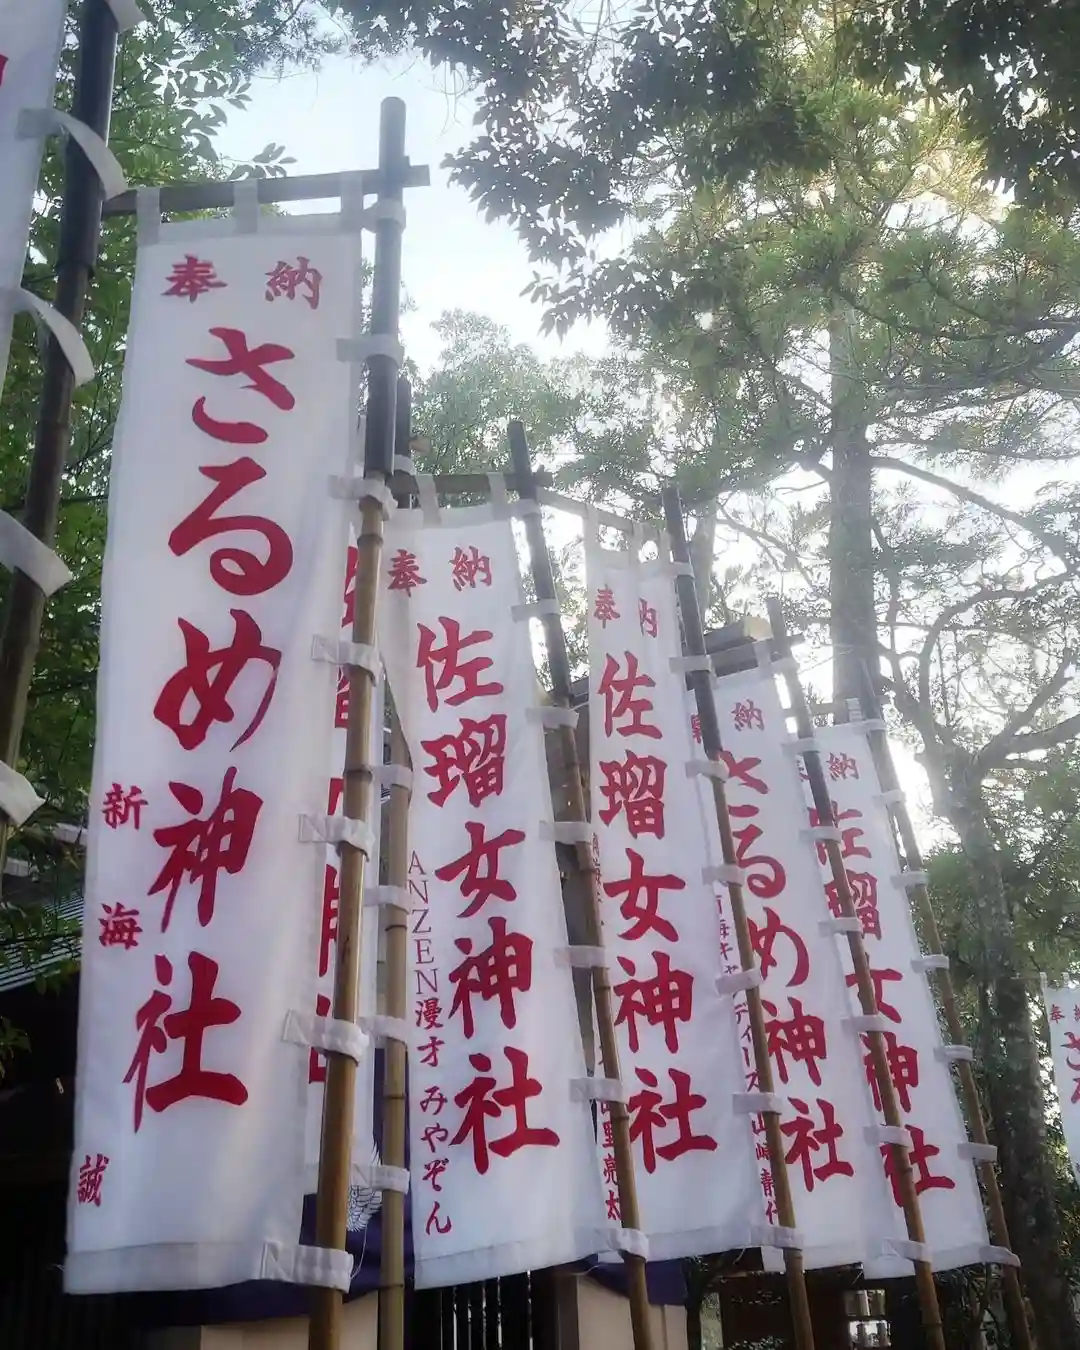 奉納
さるめ神社
新海誠
奉納
佐瑠女神社
ANZEN漫才 みやぞん
奉納
佐瑠女神社
里亮太
納
さるめ神社
南海キャンディーズ 山崎静代
納
佐瑠女神社
奉納
さ